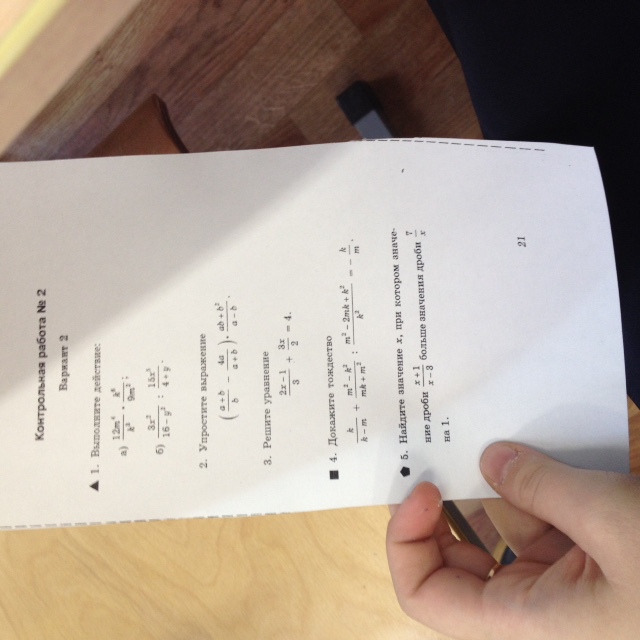 Контрольная работа № 2
Вариант 2
▲ 1. Выполните действие:
а) 12m³/k³ · k⁶/9m²;
б) 3x²/(16 − y²) : 15x³/(4 + y).
2. Упростите выражение
((a + b)/b − 4a/(a + b)) · (ab + b²)/(a − b).
3. Решите уравнение
(2x − 1)/3 + 3x/2 = 4.
■ 4. Докажите тождество
k/(k − m) + (m² − k²)/(mk + m²) : (m² − 2mk + k²)/k² = − k/m.
5. Найдите значение x, при котором значе-
ние дроби (x + 1)/(x − 3) больше значения дроби 7/x
на 1.
21